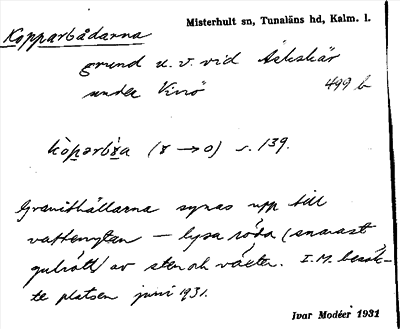 Kopparbådarna
Misterhult sn, Tunaläns hd, Kalm. l.
grund u. v. vid Äskskär
under Vinö
499 b
(ɤ → o) s. 139.
Granithällarna synas upp till
vattenytan – lysa röda (snarast
gulröda) av sten och växter. I. M. besök-
te platsen juni 1931.
Ivar Modéer 1931